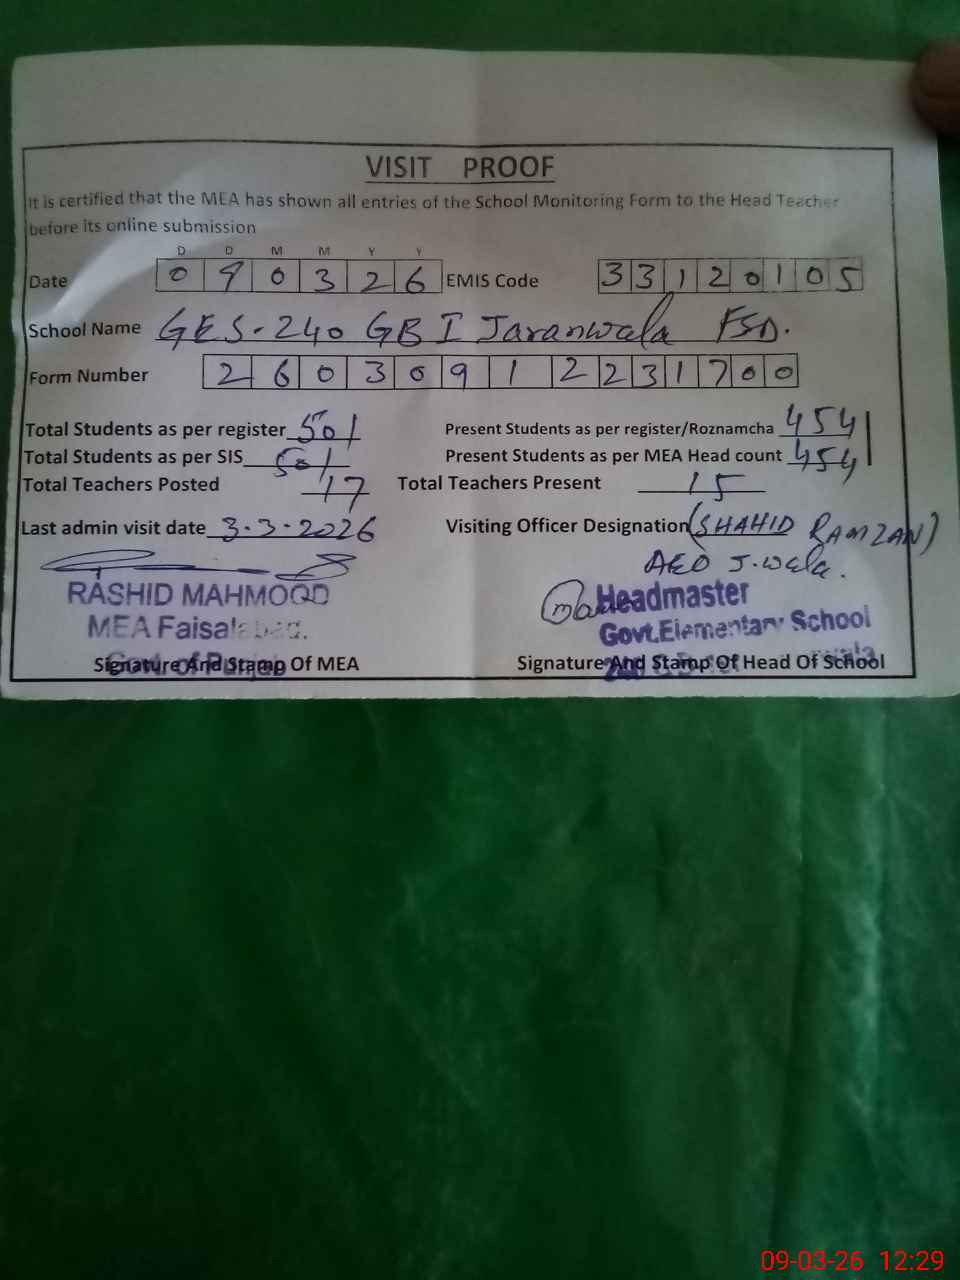 VISIT PROOF
It is certified that the MEA has shown all entries of the School Monitoring Form to the Head Teacher
before its online submission
D D M M Y Y
Date 0 9 0 3 2 6 EMIS Code 3 3 1 2 0 1 0 5
School Name GES-240 GB I Jaranwala FSD.
Form Number 2 6 0 3 0 9 1 2 2 3 1 7 0 0
Total Students as per register 501 Present Students as per register/Roznamcha 454
Total Students as per SIS 501 Present Students as per MEA Head count 454
Total Teachers Posted 17 Total Teachers Present 15
Last admin visit date 3-3-2026 Visiting Officer Designation (SHAHID RAMZAN)
AEO J.wala.
RASHID MAHMOOD
MEA Faisalabad.
Govt. of Punjab
Signature And Stamp Of MEA
Headmaster
Govt. Elementary School
Signature And Stamp Of Head Of School
09-03-26 12:29